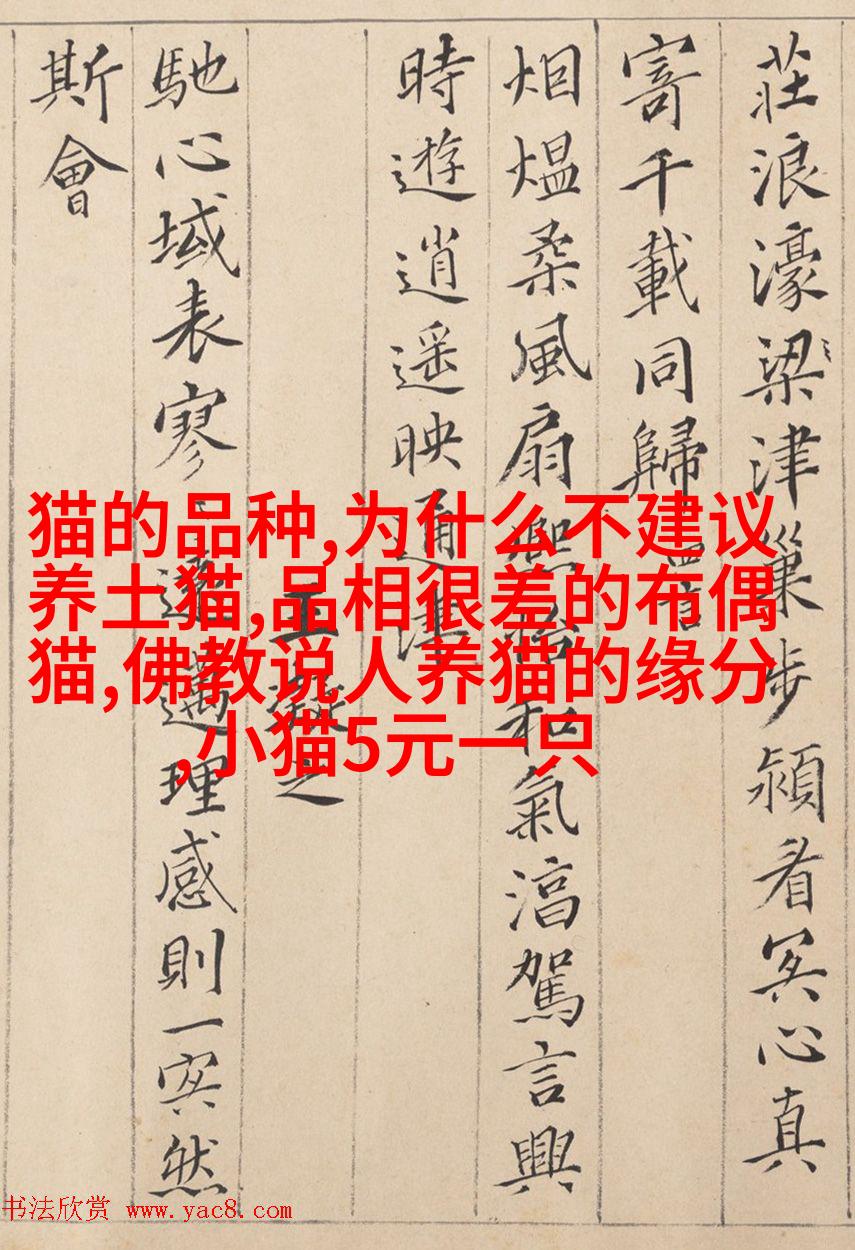 莊浪濠梁津巢步潁眉冥心真
寄千載同歸 四言
烟煴柔風扇熙怡和氣淳駕言興
時遊逍遥映通津
王凝之
馳心域表寥〻遠邁理感則一冥然
斯會
猫的品种,为什么不建议
养土猫,品相很差的布偶
猫,佛教说人养猫的缘分
,小猫5元一只
书法欣赏 www.yac8.com